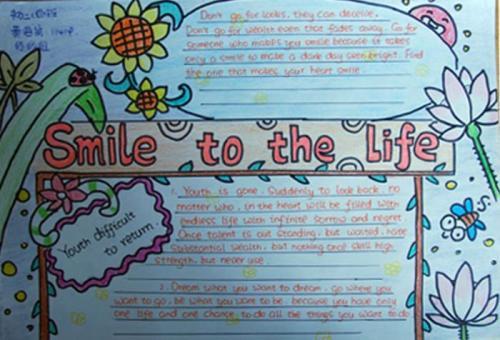 Don't go for looks, they can deceive.
Don't go for wealth even that fades away. Go for
someone who makes you smile because it takes
only a smile to make a dark day seem bright. Find
the one that makes your heart smile.
Smile to the life
Youth difficult
to return
1. Youth is gone. Suddenly to look back, no
matter who, in the heart will be filled with
endless life with infinite sorrow and regret.
Once talent is out standing, but wasted, have
substantial wealth, but nothing once skill high
strength, but never use.
2. Dream what you want to dream, go where you
want to go, be what you want to be, because you have only
one life and one chance to do all the things you want to do.